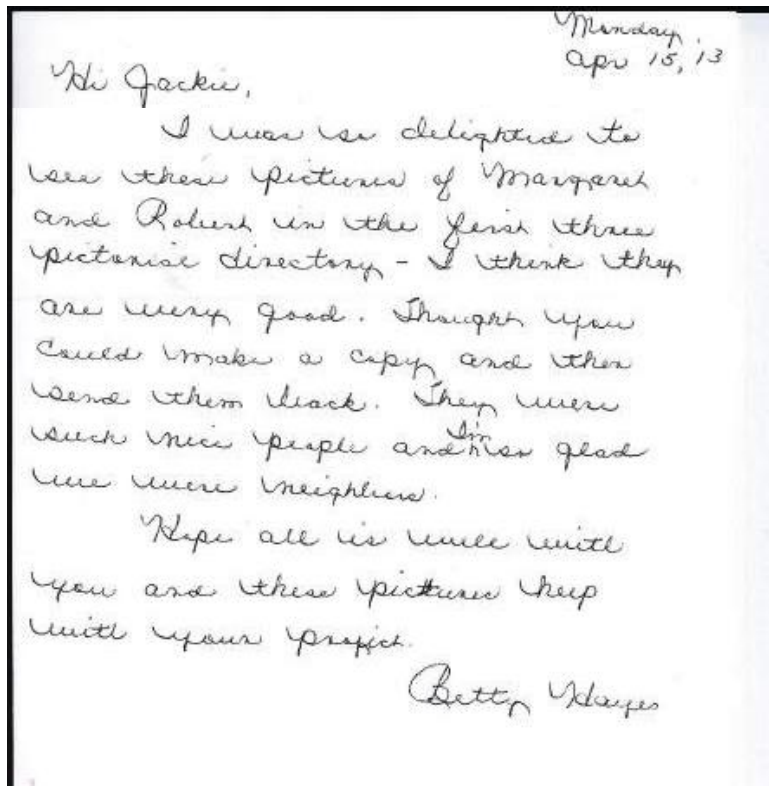 Monday,
Apr 15, 13
Hi Jackie,
I was so delighted to
see these pictures of Margaret
and Robert in the first three
pictorise directory - I think they
are very good. Thought you
could make a copy and then
send them back. They were
such nice people and I'm so glad
we were neighbors.
Hope all is well with
you and these pictures help
with your project.
Betty Hayes